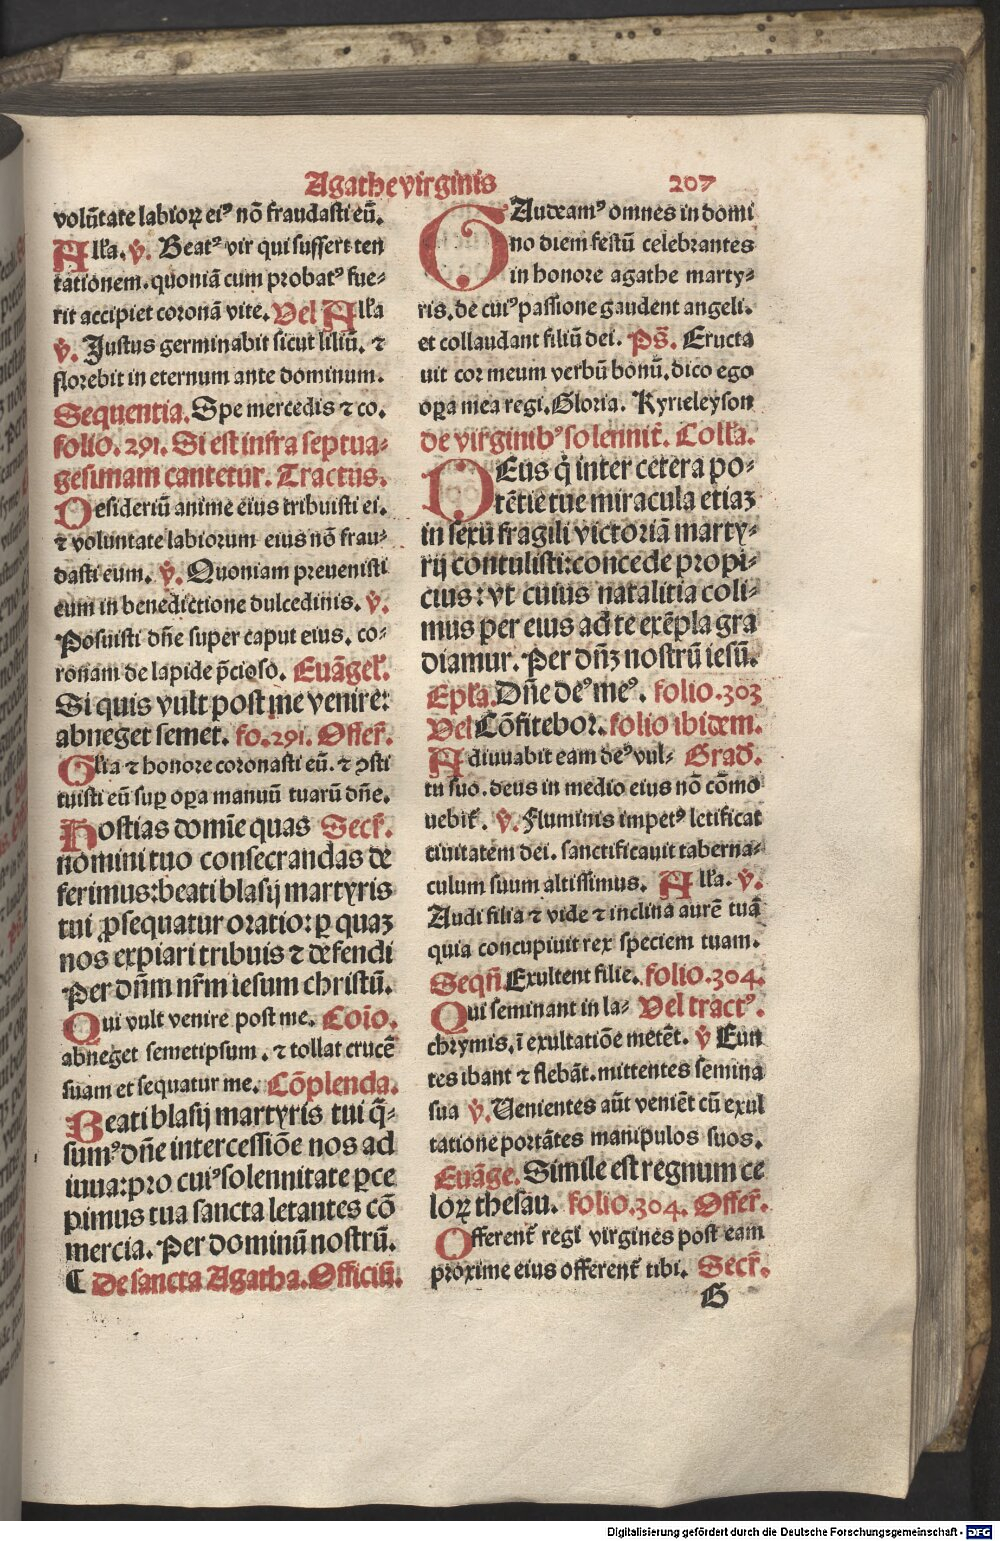 Agathe virginis 207
volūtate labioꝝ eiꝰ nō fraudasti eū.
Alľa. ỹ. Beatꝰ vir qui suffert ten
tationem. quoniā cum probatꝰ fue-
rit accipiet coronā vite. Vel Alľa
ỹ. Justus germinabit sicut liliū. ⁊
florebit in eternum ante dominum.
Sequentia. Spe mercedis ⁊ co.
folio. 291. Si est infra septua-
gesimam cantetur. Tractus.
Desideriū anime eius tribuisti ei.
⁊ voluntate labiorum eius nō frau-
dasti eum. ỹ. Quoniam preuenisti
eum in benedictione dulcedinis. ỹ.
Posuisti dn̄e super caput eius. co-
ronam de lapide p̄cioso. Euāgel'.
Si quis vult post me venire:
abneget semet. fo. 291. Offer̄.
Glia ⁊ honore coronasti eū. ⁊ ꝯsti
tuisti eū suꝑ oꝑa manuū tuarū dn̄e.
Hostias domīe quas Secr̄.
nomini tuo consecrandas de
ferimus: beati blasij martyris
tui ꝓsequatur oratio: ꝑ quaꝫ
nos expiari tribuis ⁊ defendi
Per dn̄m nr̄m iesum christū.
Qui vult venire post me. Coīo.
abneget semetipsum. ⁊ tollat crucē
suam et sequatur me. Cōplenda.
Beati blasij martyris tui q̄-
sumꝰ dn̄e intercessiōe nos ad
iuua: pro cuiꝰ solennitate ꝑce
pimus tua sancta letantes cō
mercia. Per dominū nostrū.
¶ De sancta Agatha. Officiū.
GAudeamꝰ omnes in domi
no diem festū celebrantes
in honore agathe marty-
ris. de cuiꝰ passione gaudent angeli.
et collaudant filiū dei. Ps̄. Eructa
uit cor meum verbū bonū. dico ego
oꝑa mea regi. Gloria. Kyrieleyson
de virginibꝰ solennit̄. Coll'a.
DEus q̇ inter cetera po-
tētie tue miracula etiaꝫ
in sexu fragili victoriā marty-
rij contulisti: concede propi-
cius: vt cuius natalitia coli-
mus per eius ad te exēpla gra
diamur. Per dn̄ꝫ nostrū iesū.
Epľa. Dn̄e deꝰ meꝰ. folio. 303
Vel Cōfitebor. folio ibidem.
Adiuuabit eam deꝰ vul- Grad̄.
tu suo. deus in medio eius nō cōmo
uebit̄. ỹ. Fluminis impetꝰ letificat
ciuitatem dei. sanctificauit taberna-
culum suum altissimus. Alľa. ỹ.
Audi filia ⁊ vide ⁊ inclina aurē tuā
quia concupiuit rex speciem tuam.
Seqn̄. Exultent filie. folio. 304.
Qui seminant in la- Vel tractꝰ.
chrymis. ī exultatiōe metēt. ỹ Eun
tes ibant ⁊ flebāt. mittentes semina
sua ỹ. Uenientes aūt veniēt cū exul
tatione portātes manipulos suos.
Euāge. Simile est regnum ce
loꝝ thesau. folio. 304. Offer̄.
Offerent̄ regi virgines post eam
proxime eius offerent̄ tibi. Secr̄.
G
Digitalisierung gefördert durch die Deutsche Forschungsgemeinschaft - DFG